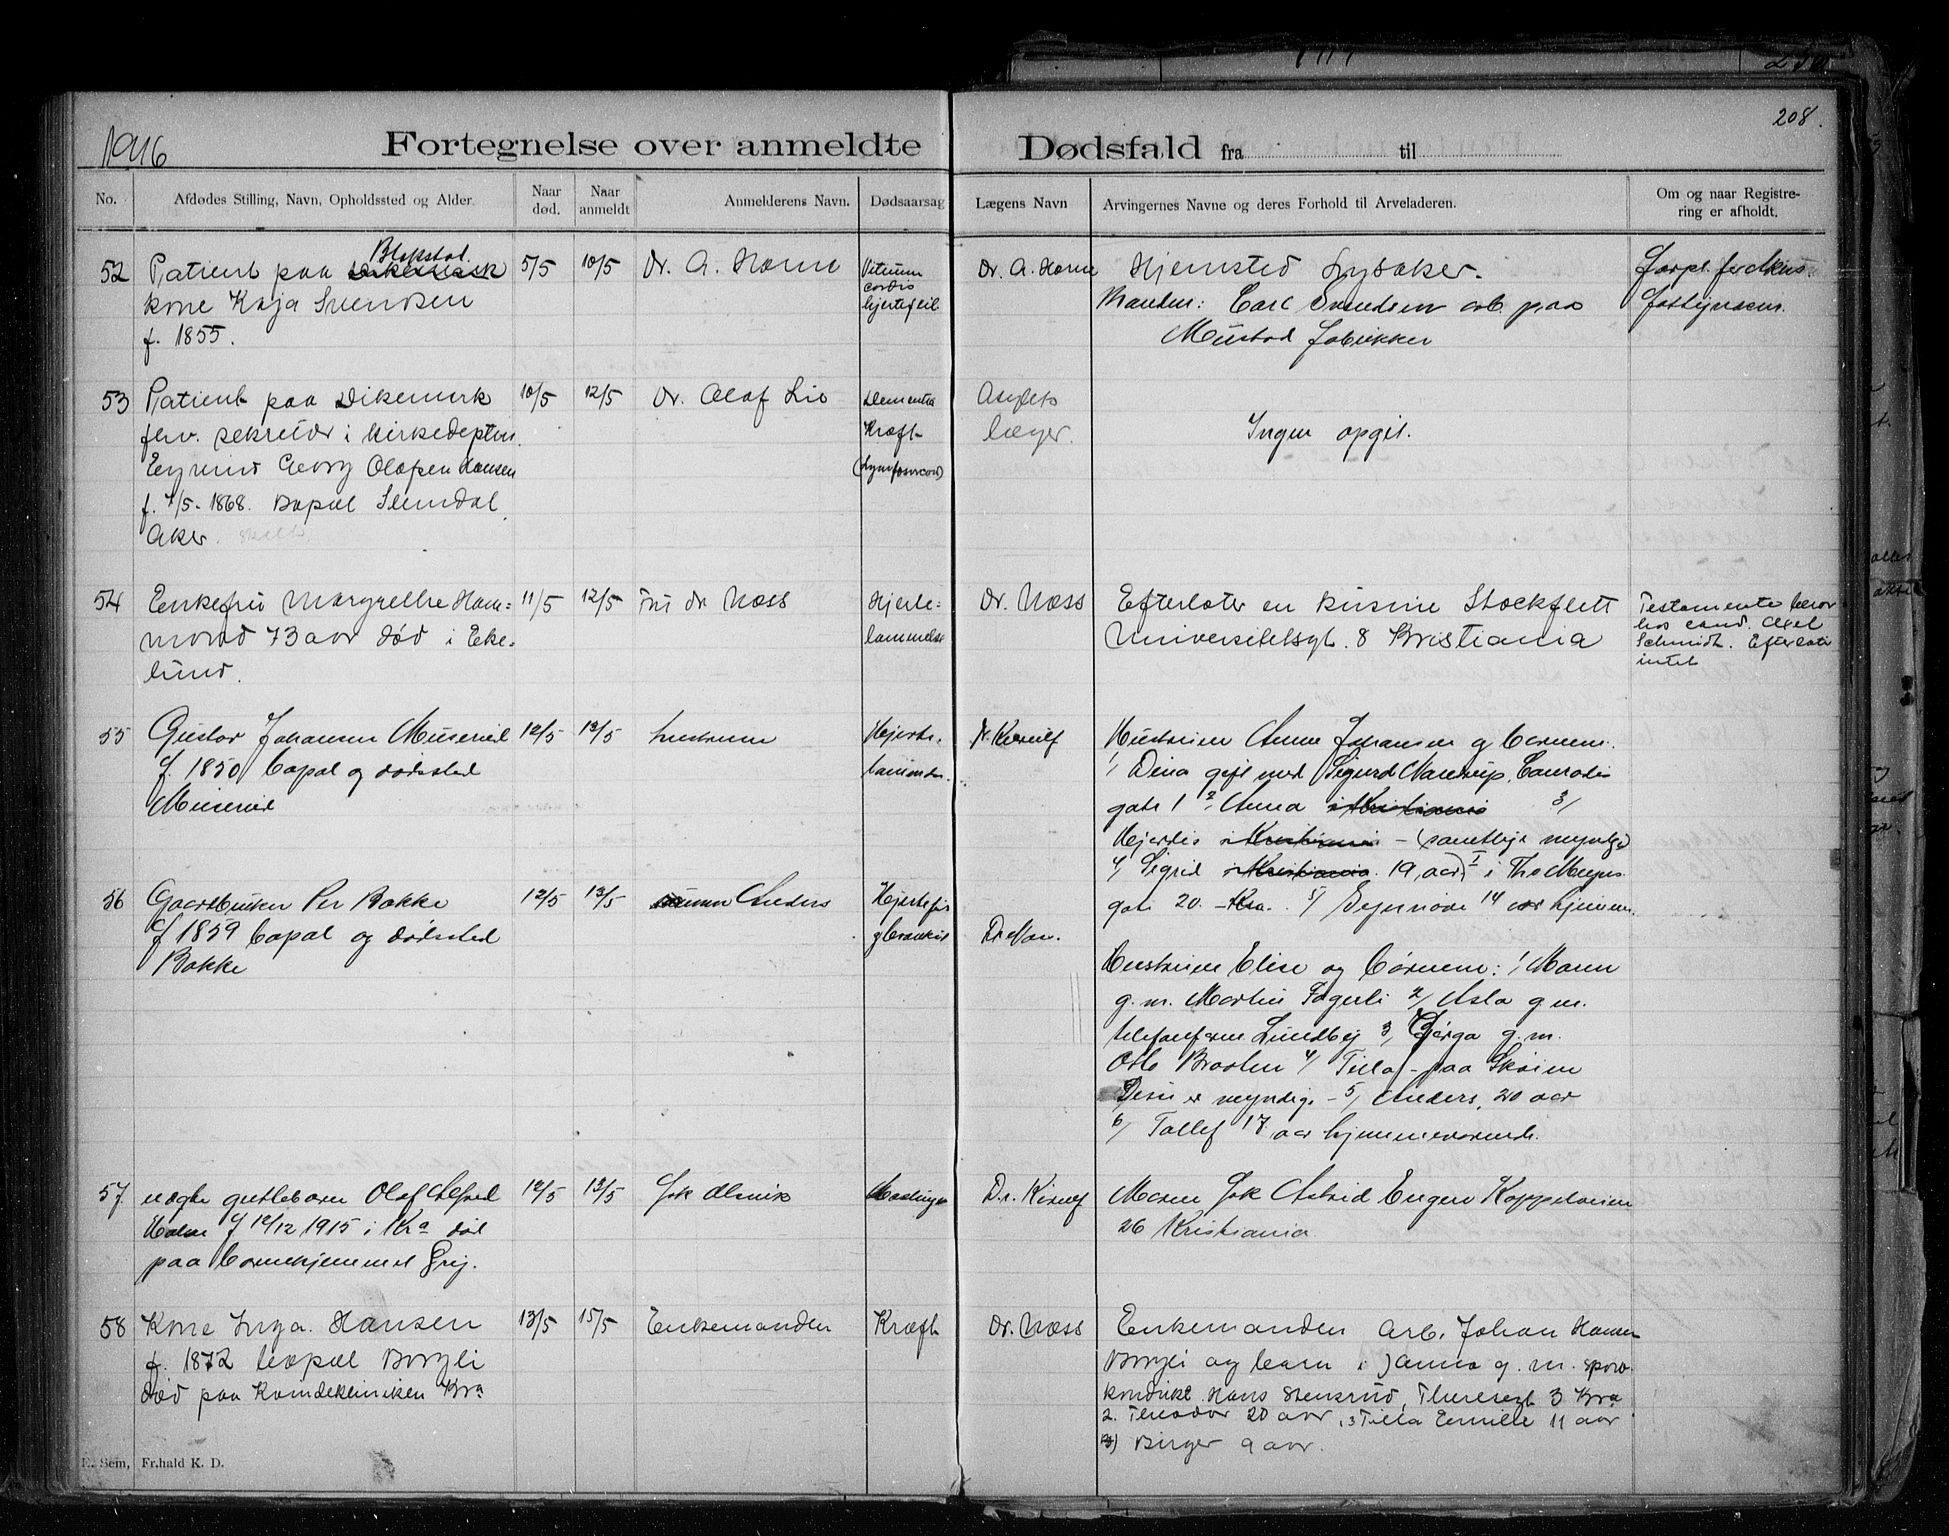 208.
1916
Fortegnelse over anmeldte Dødsfald fra til
No.
Afdødes Stilling, Navn, Opholdssted og Alder.
Naar død.
Naar anmeldt
Anmelderens Navn.
Dødsaarsag
Lægens Navn
Arvingernes Navne og deres Forhold til Arveladeren.
Om og naar Registrering er afholdt.
52
Patient paa Blakstad
kone Kaja Svendsen
f. 1855.
5/5
10/5
Dr. A. Horne
Vitium
cordis
hjertefeil
Dr. A. Horne
Hjemsted Lysaker.
Manden: Carl Svendsen arb. paa
Mustad Fabrikker
53
Patient paa Dikemark
fhv. sekretær i Kirkedeptm.
Eyvind Georg Olafsen Hansen
f. 1/5-1868. Bopæl Slemdal,
Aker.
10/5
12/5
Dr. Olaf Lie
Dementia
Kræft
Asylets
læger.
Ingen opgit.
54
Enkefru Margrethe Ham=
mond 73 aar død i Eke=
lund.
11/5
12/5
Fru dr Næss
Hjerte=
lammelse
Dr. Næss
Efterlater en kusine Stockflett
Universitetsgt. 8 Kristiania
Testamente beror
hos cand. Axel
Schmidt. Efterlati
intet
55
Gustav Johansen Muserud
f. 1850 bopæl og dødssted
Muserud
12/5
13/5
hustruen
Hjerte-
Dr. Kierulf
Hustruen Anna Johansen og børnene:
1/ Dina gift med Sigurd Narerup, Conradis
gate 1 2, Anna i Kristiania 3/
Hjerdis i Kristiania - (samtlige myndige)
4/ Sigrid i Kristiania 19 aar i Ths Meyers
gate 20. - Kra. 5/ 14 aar hjemme.
56
Gaardbruker Per Bakke
f 1859 bopæl og dødssted
Bakke
12/5
13/5
Anders
Hjertefeil
Dr. Næss
Hustruen Elise og Børnene: 1/ Maren
g. m. Martin Fagerli 2/ Asla g.m.
Lundby 3, Børga g. m.
Otto Braaten 4/ Tilla - paa Skøien
Disse er myndige - 5/ Anders, 20 aar
6/ Tollef 17 aar hjemmeværende.
57
uægte guttebarn Olaf Alfred
f 12/12 1915 i Kra død
paa barnehjemmet Grij.
12/5
13/5
Frk Alsvik
Mæslinger
Dr. Kierulf
Moren Frk Astrid Engen Keppeløeien
26 Kristiania
58
Kone Inga Hansen
f. 1872 bopæl Borgli
død paa Kvindeklinikken Kra
13/5
15/5
Enkemanden
Kræft
Dr. Næss
Enkemanden Arb. Johan Hansen
Borgli og barn 1 Janna g. m. sporv.
kondukt. Hans Stensrud, Theresegt 3 Kra
2. Theodor 20 aar, 3 Tilla Emilie 11 aar
4) Birger 9 aar.
E. Sem, Fr.hald K. D.